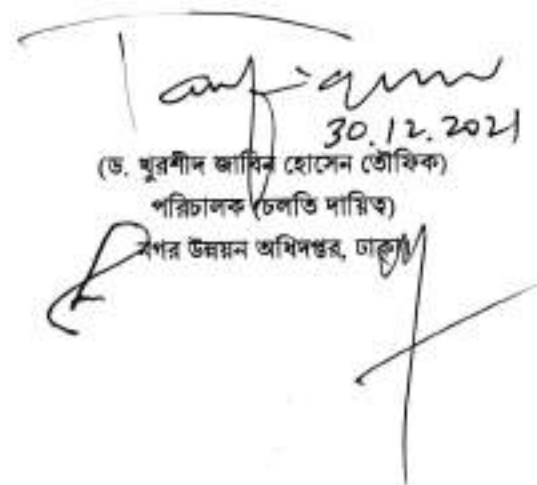 30.12.2021
(ড. খুরশীদ জাবিন হোসেন তৌফিক)
পরিচালক (চলতি দায়িত্ব)
নগর উন্নয়ন অধিদপ্তর, ঢাকা।